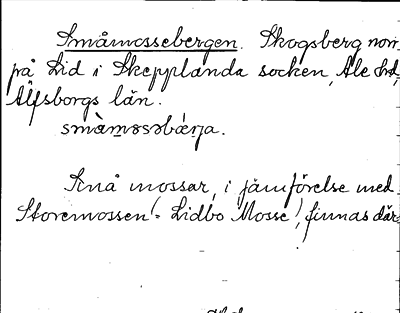 Småmossebergen. Skogsberg norr
på Lid i Skepplanda socken, Ale hd,
Älfsborgs län.
småmossebärja.
Små mossar, i jämförelse med
Storemossen (= Lidbo Mosse), finnas där